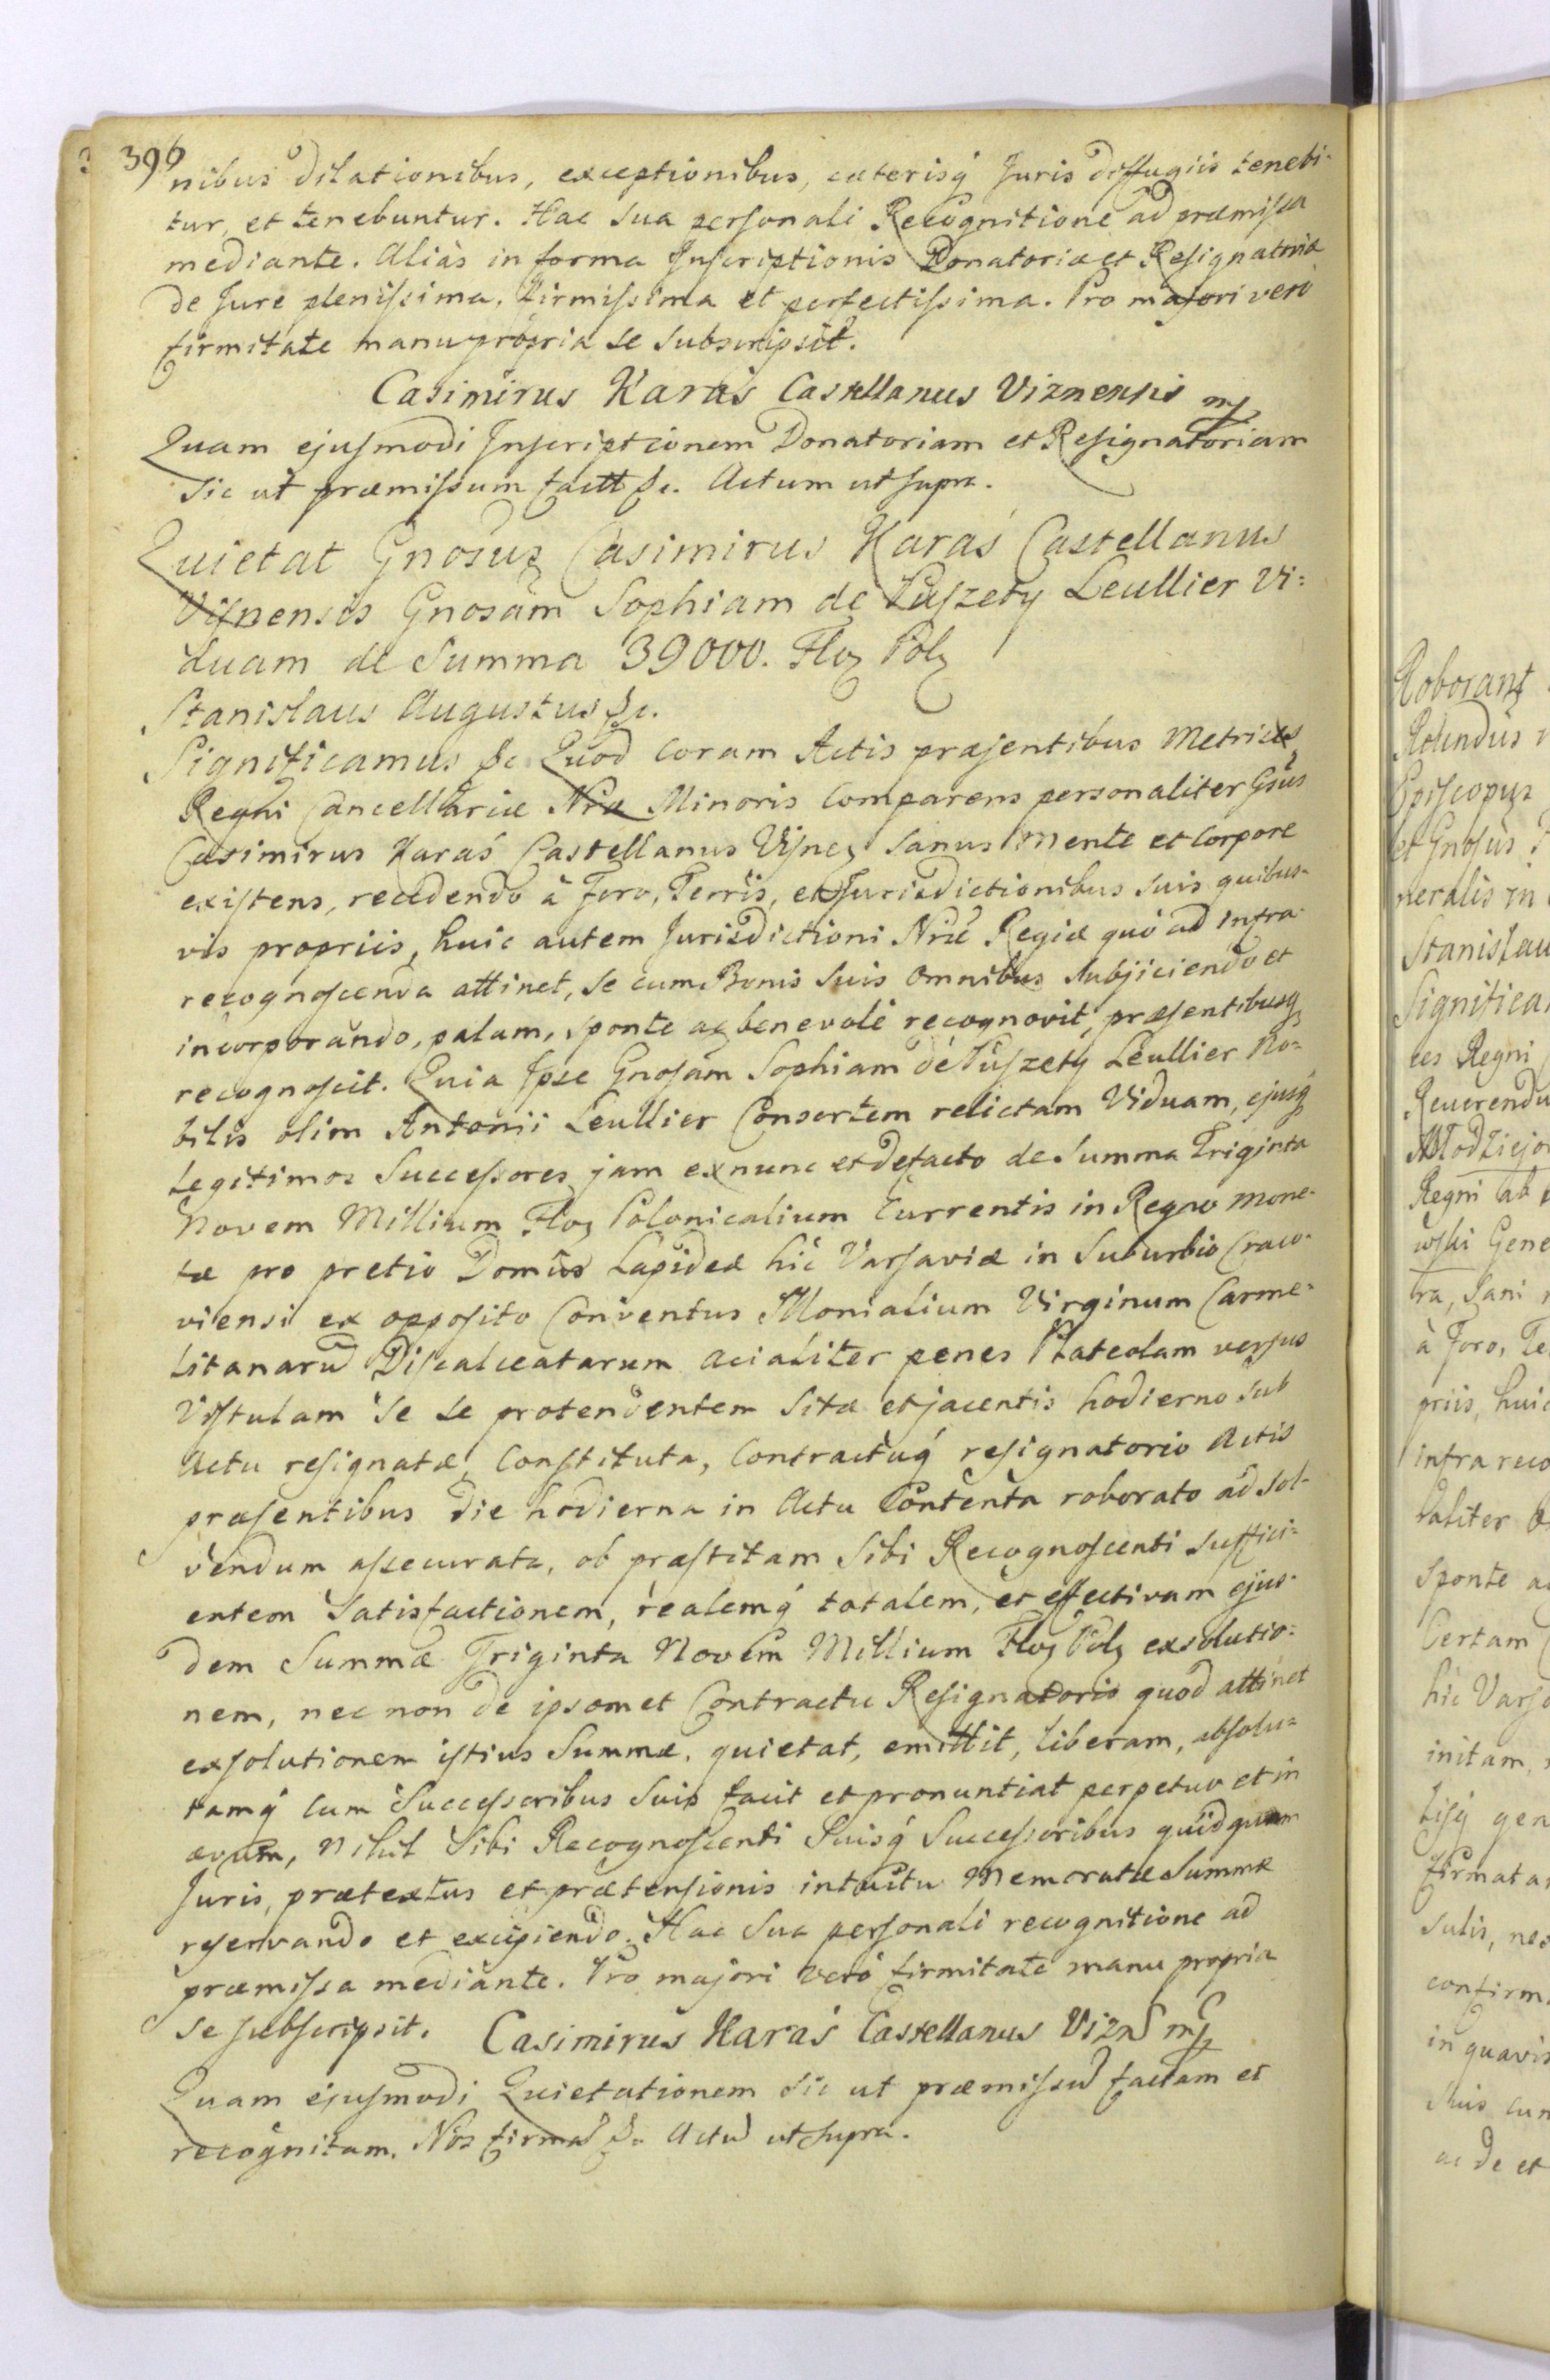 396
nibus dilationibus, exceptionibus, caterisq́ Juris diffugiis tenebi-
tur, et tenebuntur. Hac sua personali Recognitione ad præmissa
mediante. Aliàs in forma Inscriptionis Donatoriæ et Resignatoriæ
de Jure plenissima, firmissima et perfectissima. Pro majori verò
firmitate manu propria se subscripsit.
Casimirus Karaś Castellanus Viznensis mp
Quam ejusmodi Inscriptionem Donatoriam et Resignatoriam
sic ut præmissum factt &c. Actum ut supra.
Quietat Gnosus Casimirus Karaś Castellanus
Visnensis Gnosam Sophiam de Puszety Leullier Vi=
duam de Summa 39000. Floz Polz
Stanislaus Augustus &c.
Significamus &c Quod Coram Actis præsentibus Metrices
Regni Cancellariæ Nræ Minoris Comparens personaliter Gsus
Casimirus Karaś Castellanus Visnez Sanus mente et Corpore
existens, recedendo à Foro, Terris, et Jurisdictionibus suis quibus-
vis propriis, huic autem Jurisdictioni Nræ Regiæ quò ad infra-
recognoscenda attinet, se cum Bonis suis omnibus subjiciendo et
incorporando, palam, sponte ac benevolè recognovit, præsentibusq
recognoscit. Quia Ipse Gnosam Sophiam de Puszety Leullier No=
bilis olim Antonii Leullier Consortem relictam Viduam, ejusq́
Legitimos Successores jam ex nunc et de facto de Summa Triginta
Novem Millium Floz Polonicalium Currentis in Regno mone-
tæ pro pretio Domûs Lapideæ hic Varsaviæ in Suburbio Craco-
viensi ex opposito Conventus Monialium Virginum Carme-
litanarũ Discalceatarum acialiter penes Plateolam versus
Vistulam se se protendentem sitæ et jacentis hodierno sub
Actu resignatæ, Constituta, Contractuq́ resignatorio Actis
præsentibus die hodierna in Actu Contenta roborato ad sol-
vendum assecurata, ob præstitam sibi Recognoscenti suffici=
entem Satisfactionem, realemq́ totalem, et effectivam ejus-
dem Summæ Triginta Novem Millium Floz Polz exsolutio=
nem, nec non de ipsomet Contractu Resignatorio quod attinet
exsolutionem istius Summæ, quietat, emittit, liberam, absolu=
tamq́ cum Successoribus suis facit et pronuntiat perpetuo et in
ævum, nihil sibi Recognoscenti suisq́ Successoribus quidquam
Juris, prætextus et prætensionis intuitu memoratæ Summæ
reservando et excipiendo. Hac sua personali recognitione ad
præmissa mediante. Pro majori verò firmitate manu propria
se subscripsit. Casimirus Karaś Castellanus Vizn mp
Quam ejusmodi Quietationem sic ut præmissũ factam et
recognitam. Nos firmaę &c Actũ ut supra.
Roborant
Significa
ces Regni
Reverendu
Regni ab
wski Gene
à Foro, Te
priis, huic
infra reco
Sponte a
Certam
hic Varsa
initam,
tisq́ gen
firmata
confirm
in quavis
suis cum
ac de et